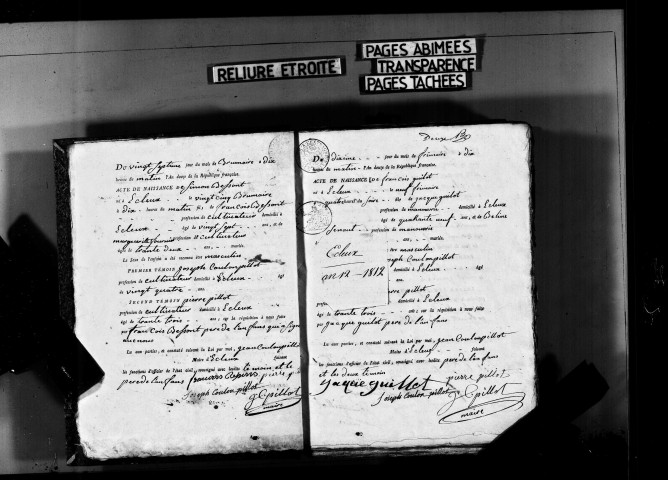 RELIURE ETROITE
PAGES ABIMEES
TRANSPARENCE
PAGES TACHÉES
Du vingt septieme jour du mois de Brumaire à dix
heures du matin l'An douze de la République française.
ACTE DE NAISSANCE de Simon Dessont
né à Ecleux le vingt cinq Brumaire
à dix heures du matin fils de francois Dessont
profession de cultivateur domicilié à
Ecleux âgé de vingt sept ans, et de
marguerite profession de cultivateur
âgée de trante deux ans, mariés.
Le Sexe de l'enfant a été reconnu être masculin
PREMIER TÉMOIN Joseph Coulonpillot
profession de cultivateur domicilié à Ecleux âgé
de vingt quatre ans,
SECOND TÉMOIN pierre pillot
profession de cultivateur domicilié à Ecleux
âgé de trante trois ans; sur la réquisition à nous faite
par francois Dessont pere de l'anfans qui a signé
avec nous
Lu aux parties, et constaté suivant la Loi par moi, jean Coulonpillot
Maire d'Ecleux faisant
les fonctions d'officier de l'état civil, soussigné avec lesdits temoin et le
pere de l'anfans
joseph coulon pillot
J C pillot
maire
Deuxe
Du dixieme jour du mois de frimaire à dix
heures du matin l'An douze de la République française.
ACTE DE NAISSANCE de francois guillot
né à Ecleux le neuf frimaire
à quatre heures du soire fils de jacque guillot
profession de manouvrie domicilié à Ecleux
âgé de quarante neuf ans, et de
profession de manouvrie
ans, mariés.
être masculin
Joseph Coulonpillot
domicilié à Ecleux âgé
ans,
pierre pillot
domicilié à Ecleux
Ecleux
an 12 - 1812
âgé de trante trois ans: sur la réquisition à nous faite
par jacque guillot pere de l'anfans
Lu aux parties, et constaté suivant la Loi par moi, jean Coulonpillot
Maire d'Ecleux faisant
les fonctions d'officier de l'état civil, soussigné avec lesdits pere de l'anfans
et les deux temoin
Jaque guillot pierre pillot
joseph coulon pillot J C pillot
maire